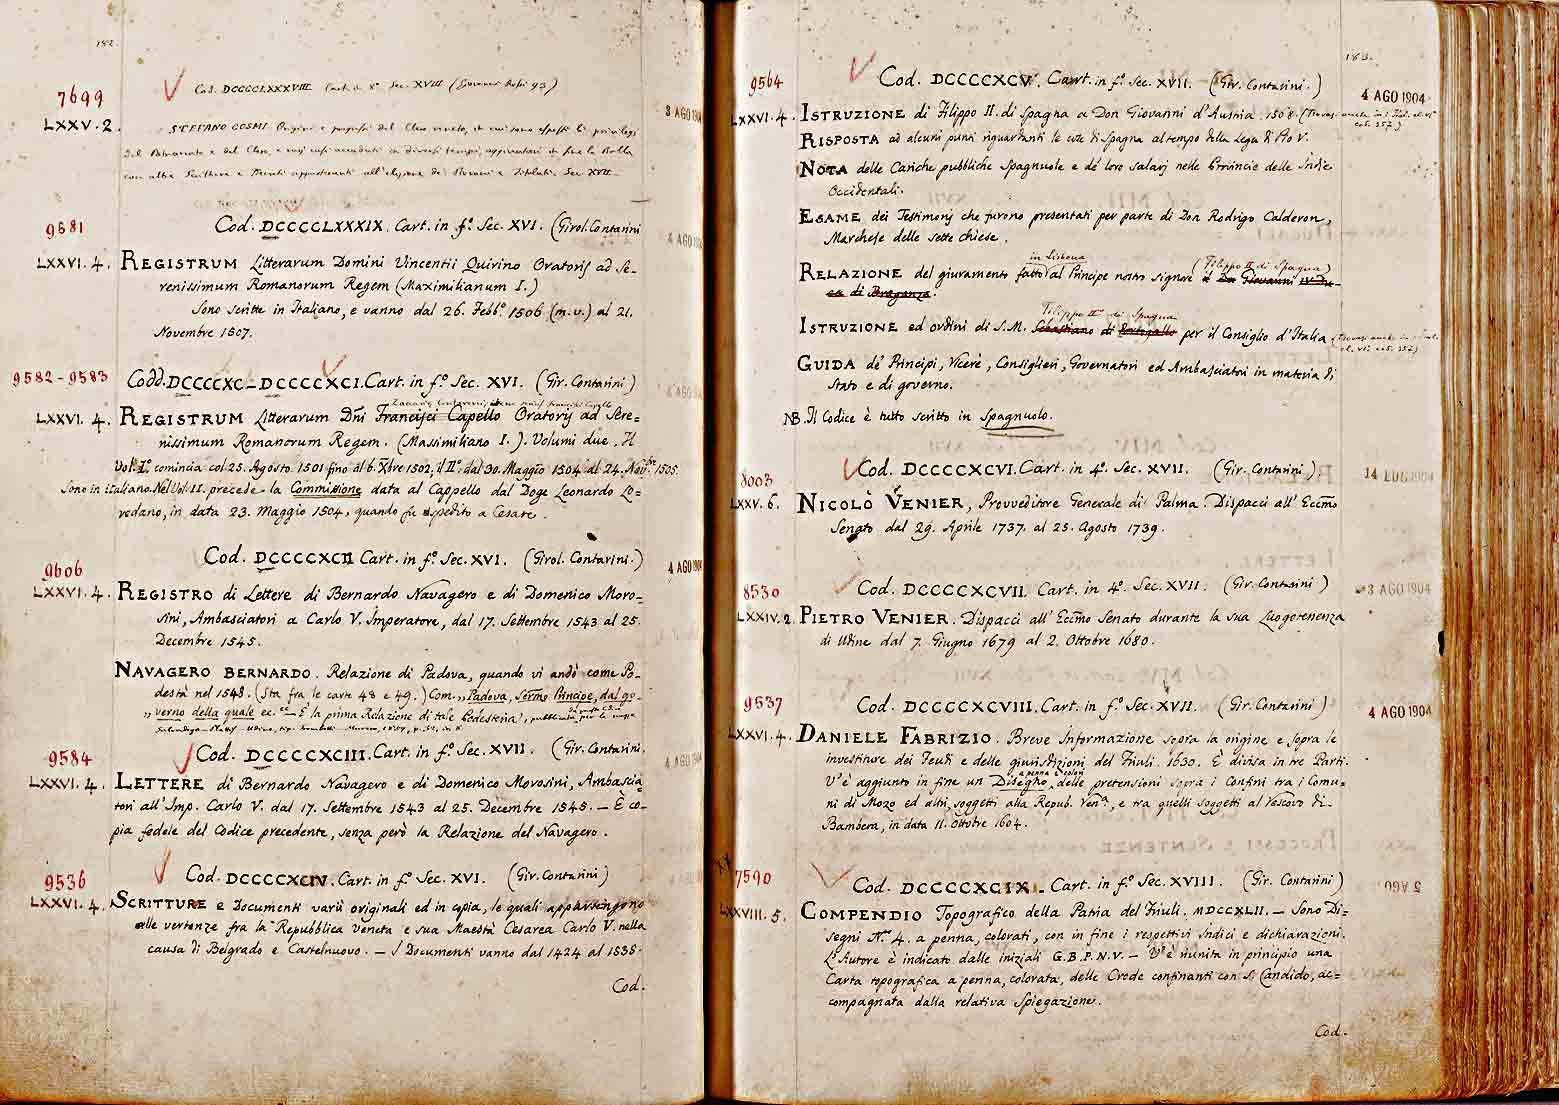 182.
7699
Cod. DCCCCLXXXVIII Cart. in 8º Sec. XVIII
3 AGO 1904
LXXV. 2.
STEFANO COSMI
9681
Cod. DCCCCLXXXIX. Cart. in fº. Sec. XVI. (Girol. Contarini
4 AGO 1904
LXXVI. 4. REGISTRUM Litterarum Domini Vincentii Quirino Oratoris ad Se-
renissimum Romanorum Regem (Maximilianum I.)
Sono scritte in Italiano, e vanno dal 26. Febbº. 1506 (m.v.) al 21.
Novembre 1507.
9582-9583 Codd. DCCCCXC-DCCCCXCI. Cart. in fº. Sec. XVI. (Gir. Contarini)
4 AGO 1904
LXXVI. 4. REGISTRUM Litterarum Dni Francisci Capello Oratoris ad Sere=
nissimum Romanorum Regem. (Massimiliano I.). Volumi due. Il
Vol. Iº. comincia col 25. Agosto 1501 fino al 6. Xbre 1502; il IIº. dal 30. Maggio 1504 al 24. Novbre 1505.
Sono in italiano. Nel Vol. II. precede la Commissione data al Cappello dal Doge Leonardo Lo=
redano, in data 23. Maggio 1504, quando fu spedito a Cesare.
9606
Cod. DCCCCXCII Cart. in fº. Sec. XVI. (Girol. Contarini.)
4 AGO 1904
LXXVI. 4. REGISTRO di Lettere di Bernardo Navagero e di Domenico Moro=
sini, Ambasciatori a Carlo V. Imperatore, dal 17. Settembre 1543 al 25.
Decembre 1545.
NAVAGERO BERNARDO. Relazione di Padova, quando vi andò come Po-
destà nel 1548. (Sta fra le carte 48 e 49.) Com. „Padova, Sermo Principe, dal go-
„verno della quale ec. — È la prima Relazione di tale Podesteria,
9584
Cod. DCCCCXCIII. Cart. in fº. Sec. XVII. (Gir. Contarini.
4 AGO 1904
LXXVI. 4. LETTERE di Bernardo Navagero e di Domenico Morosini, Ambascia=
tori all'Imp. Carlo V. dal 17. Settembre 1543 al 25. Decembre 1545. — È co-
pia fedele del Codice precedente, senza però la Relazione del Navagero.
9536
Cod. DCCCCXCIV. Cart. in fº. Sec. XVI. (Gir. Contarini)
LXXVI. 4. SCRITTURE e Documenti varii originali ed in copia, le quali appartengono
alle vertenze fra la Repubblica Veneta e sua Maestà Cesarea Carlo V. nella
causa di Belgrado e Castelnuovo. — I Documenti vanno dal 1424 al 1538.
Cod.
183.
9564
Cod. DCCCCXCV. Cart. in fº. Sec. XVII. (Gir. Contarini.)
4 AGO 1904
LXXVI. 4. ISTRUZIONE di Filippo II. di Spagna a Don Giovanni d'Austria. 1568.
RISPOSTA ad alcuni punti riguardanti le cose di Spagna al tempo della Lega di Pio V.
NOTA delle Cariche pubbliche Spagnuole e de' loro salarj nelle Provincie delle Indie
Occidentali.
ESAME dei Testimonj che furono presentati per parte di Don Rodrigo Calderon,
Marchese delle sette chiese.
in Lisbona
(Filippo II di Spagna)
RELAZIONE del giuramento fatto al Principe nostro Signore a Don Giovanni IV Du-
ca di Braganza.
Filippo IIº di Spagna
ISTRUZIONE ed ordini di S. M. Sebastiano di Portogallo per il Consiglio d'Italia
GUIDA de' Principi, Vicerè, Consiglieri, Governatori ed Ambasciatori in materia di
Stato e di governo.
NB. Il Codice è tutto scritto in Spagnuolo.
8003
Cod. DCCCCXCVI. Cart. in 4º. Sec. XVII. (Gir. Contarini)
14 LUG 1904
LXXV. 6. NICOLÒ VENIER, Provveditore Generale di Palma. Dispacci all'Eccmo
Senato dal 29. Aprile 1737. al 25. Agosto 1739.
8530
Cod. DCCCCXCVII. Cart. in 4º. Sec. XVII. (Gir. Contarini)
3 AGO 1904
LXXIV. 2. PIETRO VENIER. Dispacci all'Eccmo Senato durante la sua Luogotenenza
di Udine dal 7. Giugno 1679 al 2. Ottobre 1680.
9537
Cod. DCCCCXCVIII. Cart. in fº. Sec. XVII. (Gir. Contarini)
4 AGO 1904
LXXVI. 4. DANIELE FABRIZIO. Breve Informazione sopra la origine e sopra le
investiture dei Feudi e delle giurisdizioni del Friuli. 1630. È divisa in tre Parti.
V'è aggiunto in fine un Disegno a penna e colori delle pretensioni sopra i Confini tra i Comu=
ni di Mozo ed altri soggetti alla Repub. Vena, e tra quelli soggetti al Vescovo di-
Bamberga, in data 11. Ottobre 1604.
7590
Cod. DCCCCXCIX. Cart. in fº. Sec. XVIII. (Gir. Contarini)
LXXVIII. 5. COMPENDIO Topografico della Patria del Friuli. MDCCXLII. — Sono Di=
segni Nº. 4. a penna, colorati, con in fine i respettivi Indici e dichiarazioni.
L'Autore è indicato dalle iniziali G.B.P.N.V. — V'è riunita in principio una
Carta topografica a penna, colorata, delle Crode confinanti con S. Candido, ac=
compagnata dalla relativa Spiegazione.
Cod.